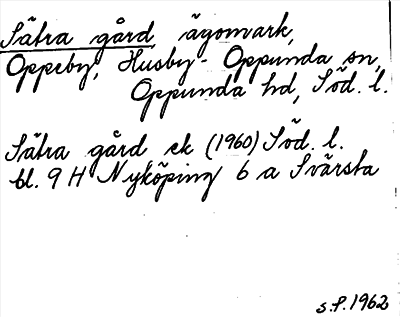 Sätra gård, ägomark,
Oppeby, Husby-Oppunda sn,
Oppunda hd, Söd. l.
Sätra gård ek (1960) Söd. l.
bl. 9 H Nyköping 6 a Svärsta
S.P. 1962